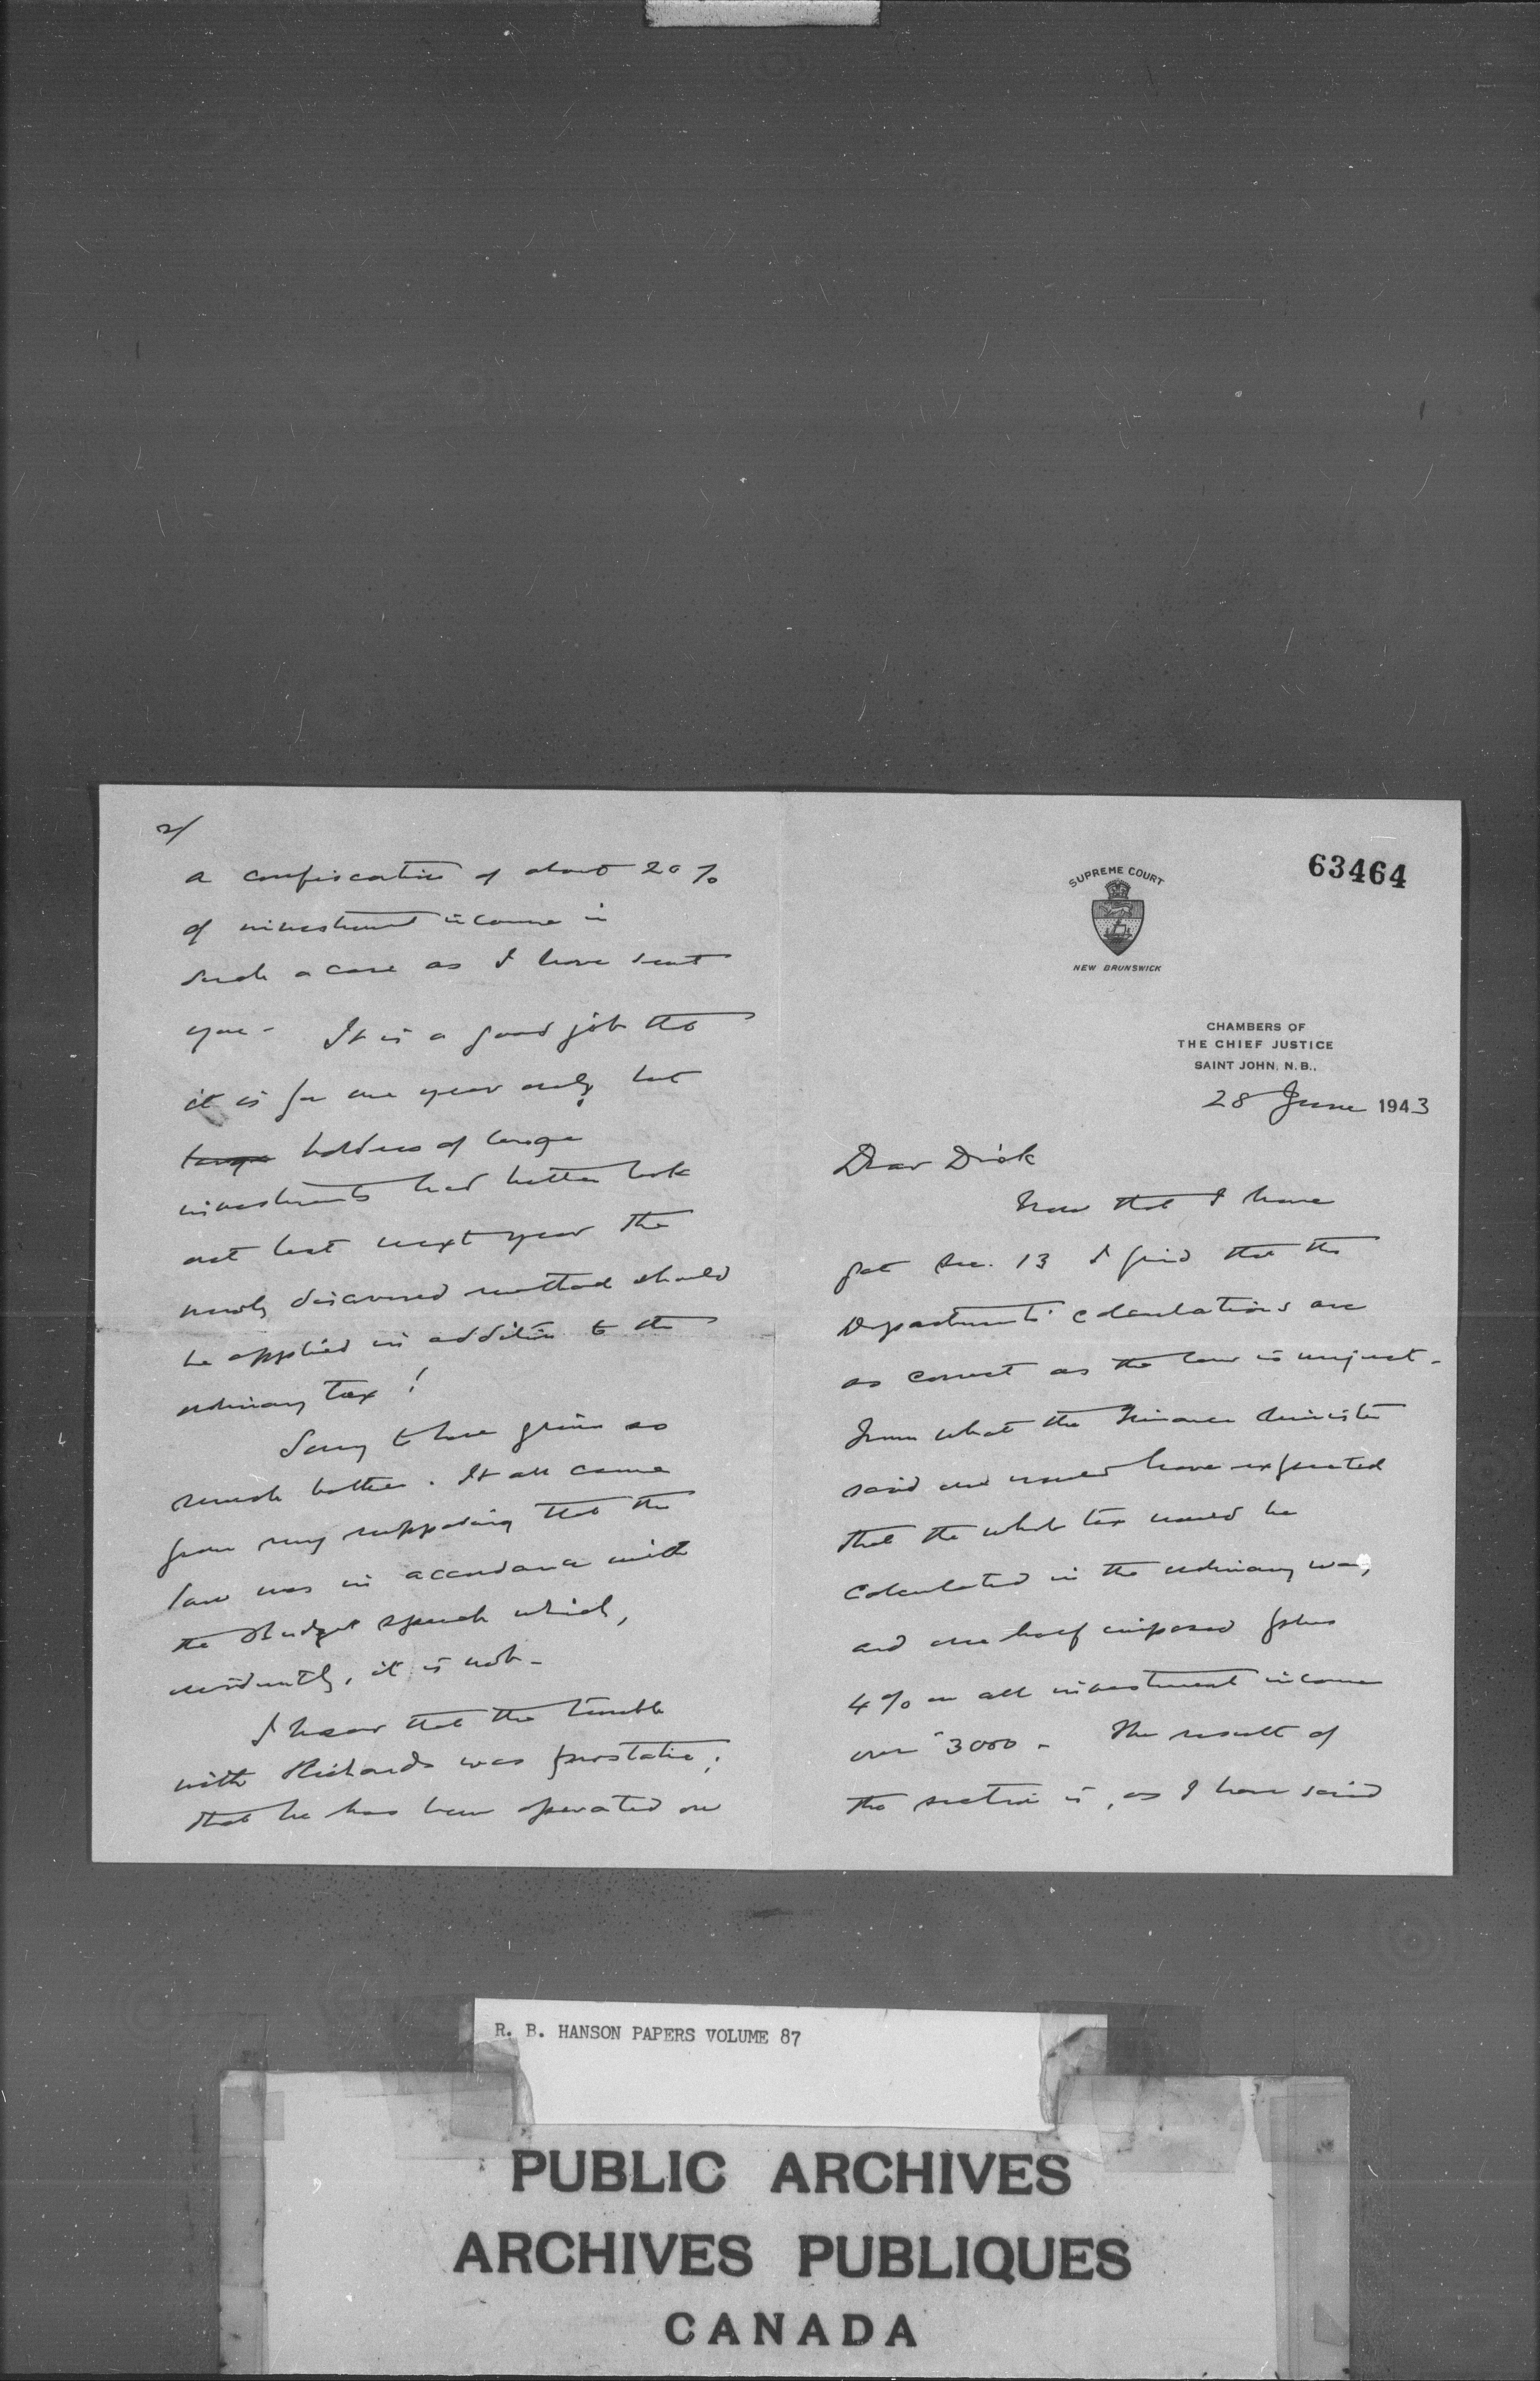 63464
SUPREME COURT
NEW BRUNSWICK
CHAMBERS OF
THE CHIEF JUSTICE
SAINT JOHN, N.B.,
28 June 1943
Dear Dick
Now that I have
got Sec. 13 I find that the
Department's calculations are
as correct as the law is unjust.
From what the Finance Minister
said one would have expected
that the whole tax would be
calculated in the ordinary way,
and one half imposed plus
4% on all investment income
over 3000 - The result of
the section is, as I have said
2/
a confiscation of about 20%
of investment income in
such a case as I have sent
you - It is a good job tho
it is for one year only but
large holders of large
investments had better look
out lest next year the
newly discovered method should
be applied in addition to the
ordinary tax!
Sorry to have given so
much bother. It all came
from my supposing that the
law was in accordance with
the Budget speech which,
evidently, it is not -
I hear that the trouble
with Richards was prostatic;
that he has been operated on
R. B. HANSON PAPERS VOLUME 87
PUBLIC ARCHIVES
ARCHIVES PUBLIQUES
CANADA